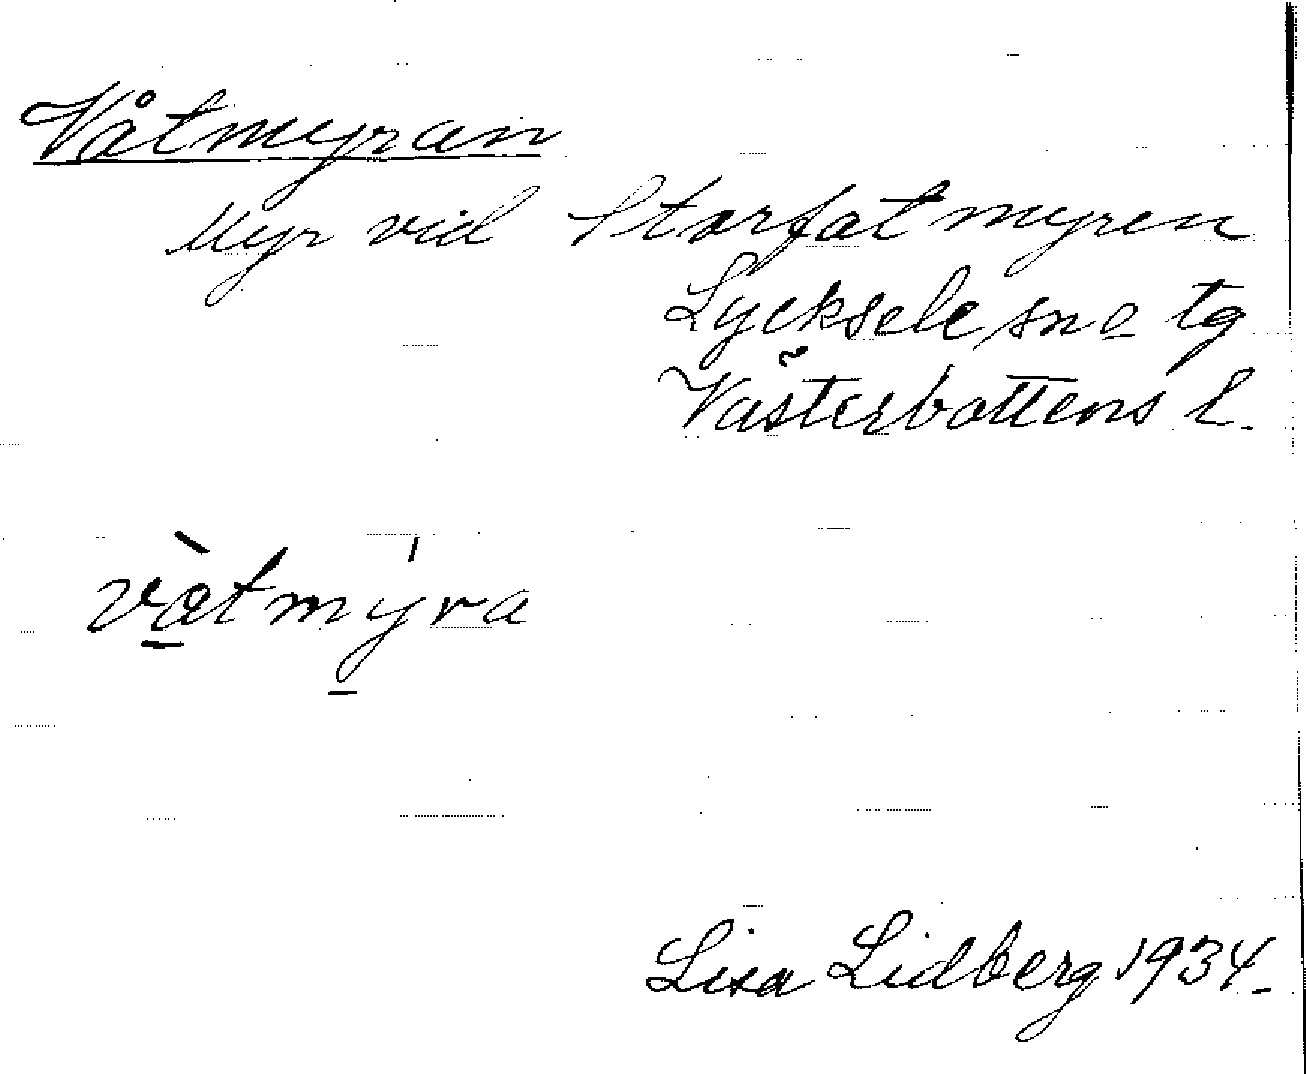 Våtmyran
Myr vid Storfatmyren
Lycksele sn o tg
Västerbottens l.
våtmyra
Lisa Lidberg 1934.